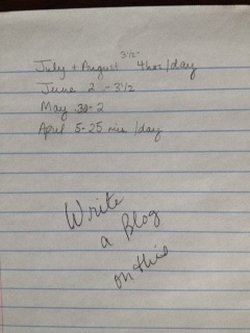 3½-
July + August 4hrs/day
June 2 - 3½
May .30-2
April 5-25 min /day
Write
a Blog
on this